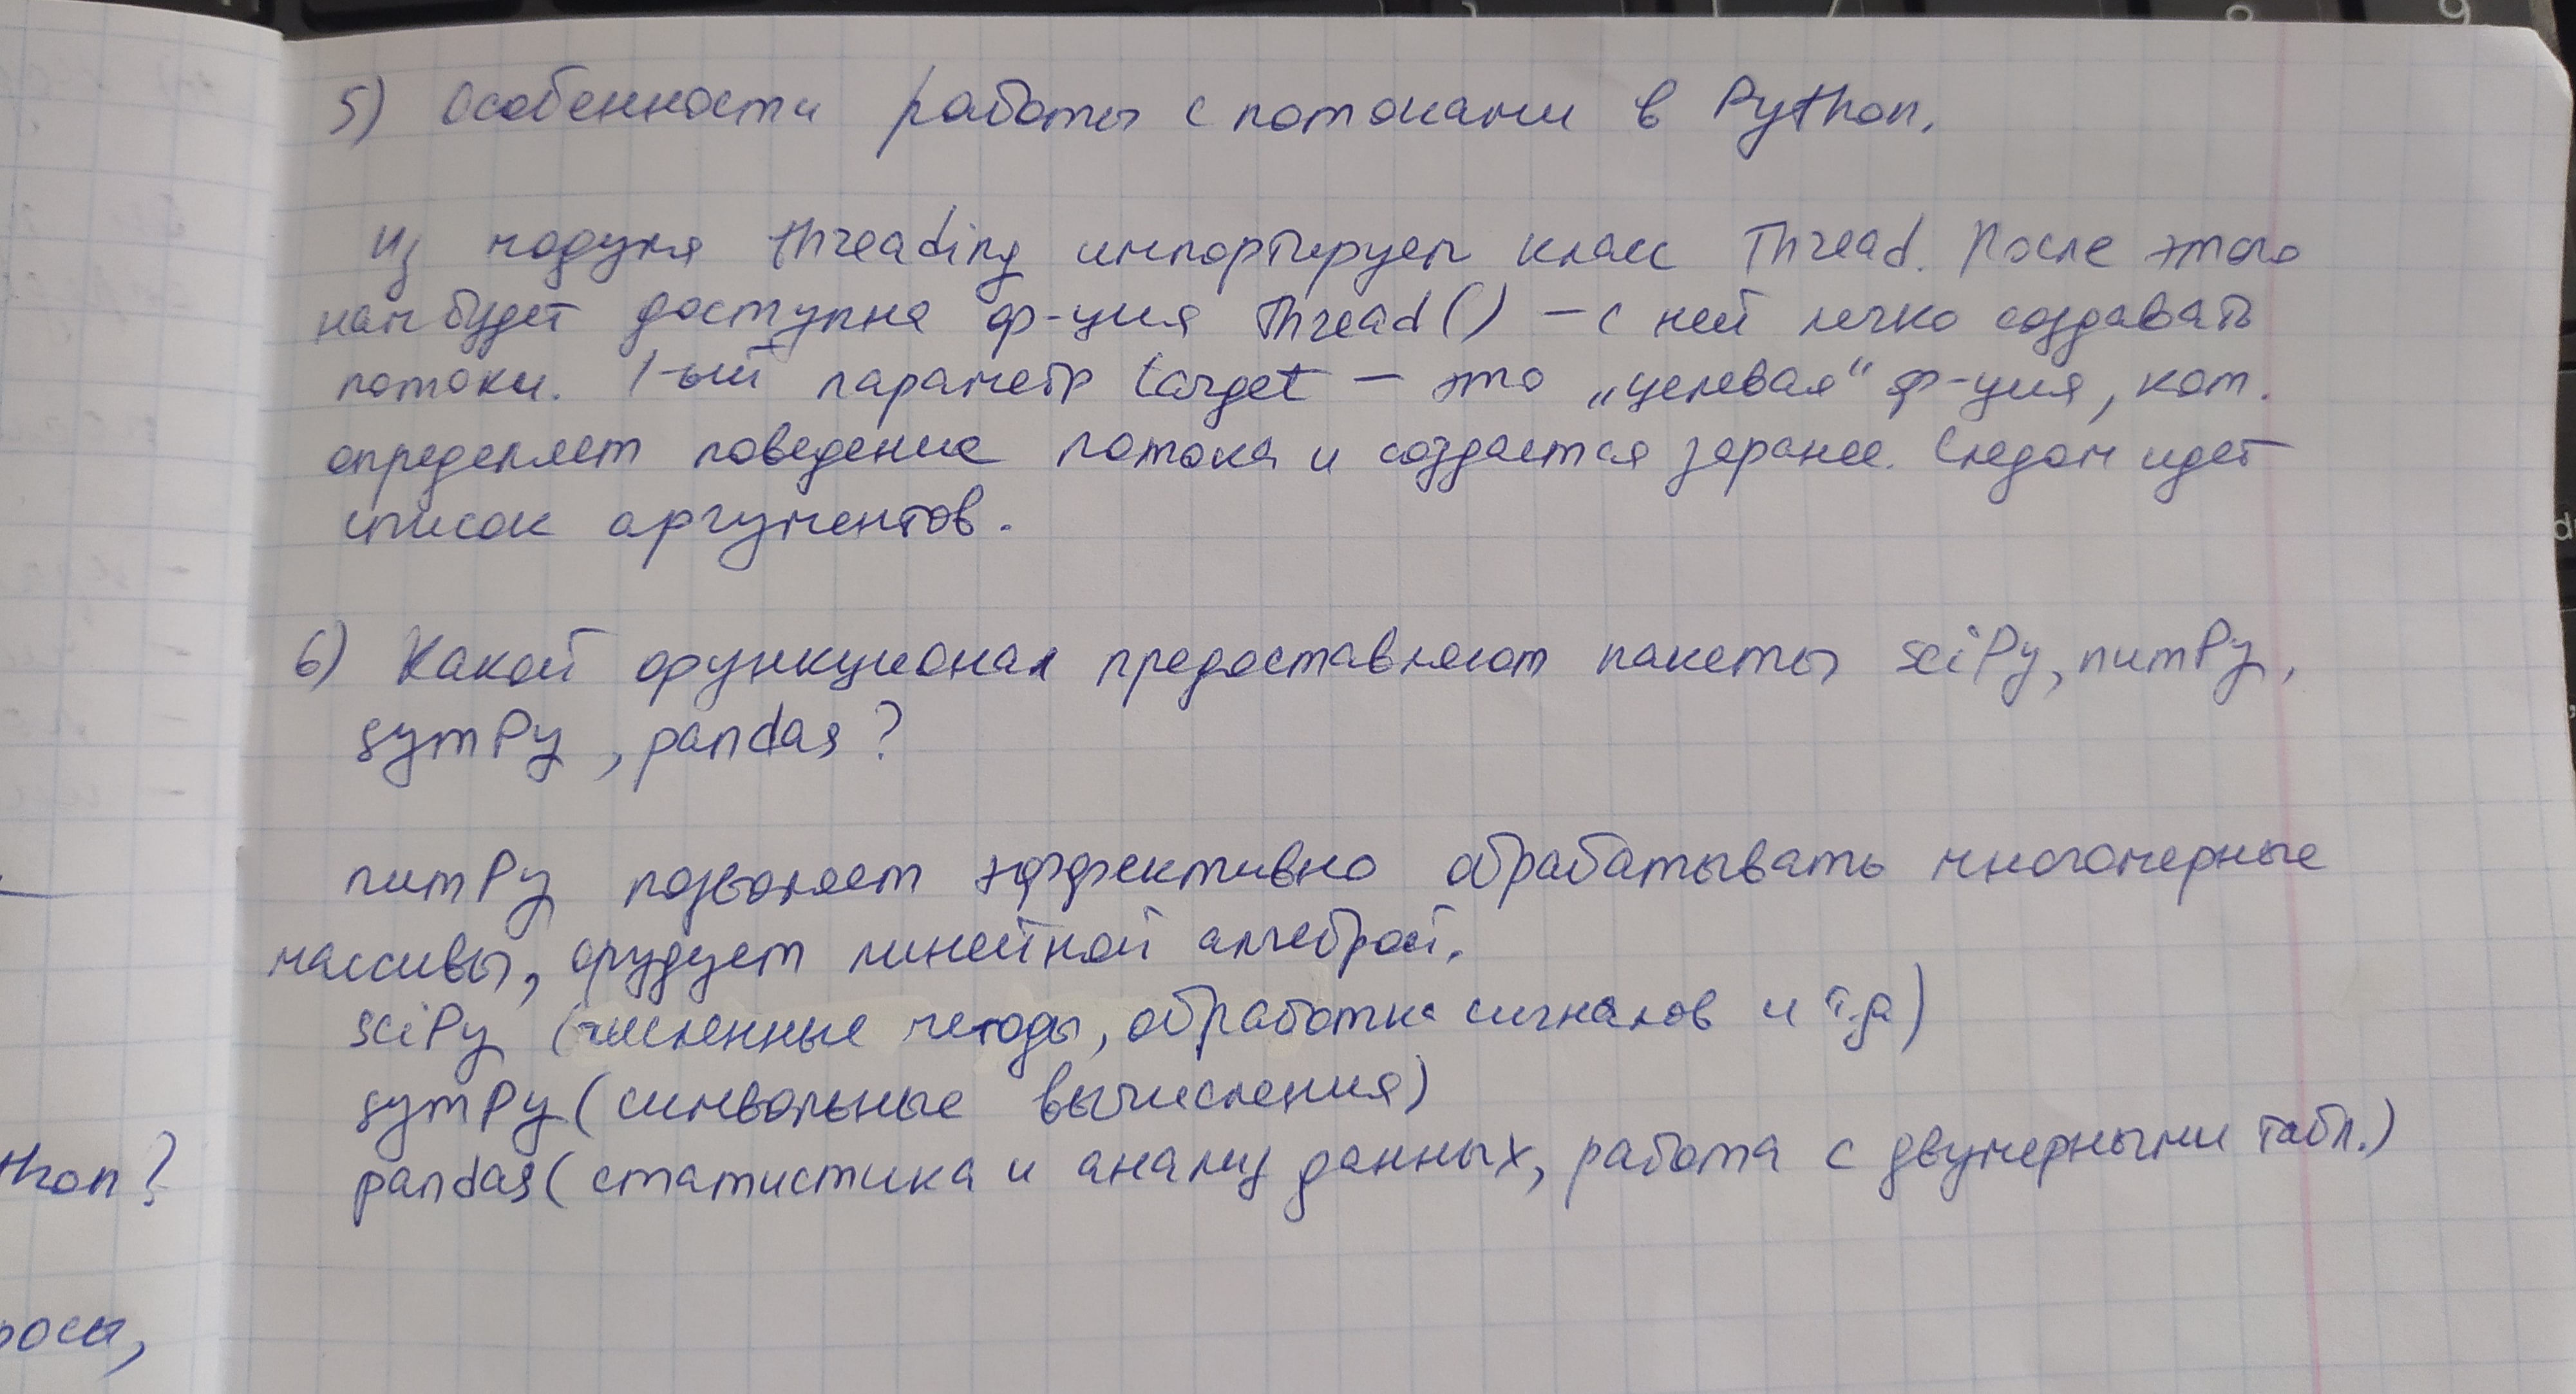 5) Особенности работы с потоками в Python.
Из модуля threading импортируем класс Thread. После этого
нам будет доступна ф-ция Thread() – с ней легко создавать
потоки. 1-ый параметр target – это „целевая“ ф-ция, кот.
определяет поведение потока и создается заранее. Следом идет
список аргументов.
6) Какой функционал предоставляют пакеты sciPy, numPy,
symPy, pandas?
numPy позволяет эффективно обрабатывать многомерные
массивы, орудует линейной алгеброй.
sciPy (численные методы, обработка сигналов и т.д)
symPy (символьные вычисления)
pandas (статистика и анализ данных, работа с двумерными табл.)
thon?
росы,